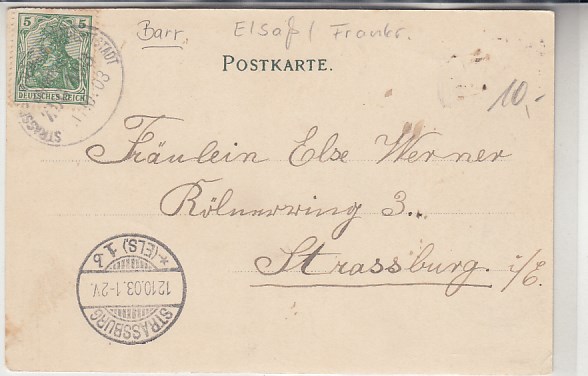 Barr. Elsaß / Frankr.
5 5
DEUTSCHES REICH
POSTKARTE.
10,-
STRASS STADT
03
Fräulein Else Werner
Kölnerring 3..
Strassburg. i/E.
STRASSBURG
12.10.03. 1-2V.
* (ELS.) 1. b